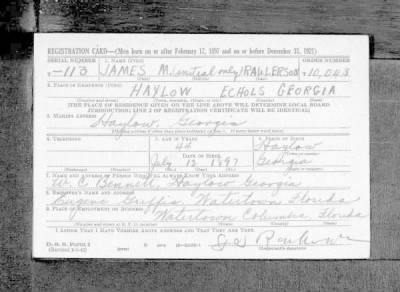 REGISTRATION CARD—(Men born on or after February 17, 1897 and on or before December 31, 1921)
SERIAL NUMBER 1. NAME (Print) ORDER NUMBER
-113 JAMES M. (initial only) RAULERSON 10,048
(First) (Middle) (Last)
2. PLACE OF RESIDENCE (Print)
HAYLOW ECHOLS GEORGIA
(Number and street) (Town, township, village, or city) (County) (State)
[THE PLACE OF RESIDENCE GIVEN ON THE LINE ABOVE WILL DETERMINE LOCAL BOARD
JURISDICTION; LINE 2 OF REGISTRATION CERTIFICATE WILL BE IDENTICAL]
3. MAILING ADDRESS
Haylow, Georgia
[Mailing address if other than place indicated on line 2. If same insert word same]
4. TELEPHONE 5. AGE IN YEARS 6. PLACE OF BIRTH
Haylow
DATE OF BIRTH (Town or county)
July 12 1897 Georgia
(Exchange) (Number) (Mo.) (Day) (Yr.) (State or country)
7. NAME AND ADDRESS OF PERSON WHO WILL ALWAYS KNOW YOUR ADDRESS
W. C. Bennett, Haylow Georgia
8. EMPLOYER'S NAME AND ADDRESS
Eugene Griffis, Watertown Florida
9. PLACE OF EMPLOYMENT OR BUSINESS
Watertown Columbia Florida
(Number and street or R. F. D. number) (Town) (County) (State)
I AFFIRM THAT I HAVE VERIFIED ABOVE ANSWERS AND THAT THEY ARE TRUE.
D. S. S. Form 1
(Revised 1-1-42) (over)
(Registrant's signature)